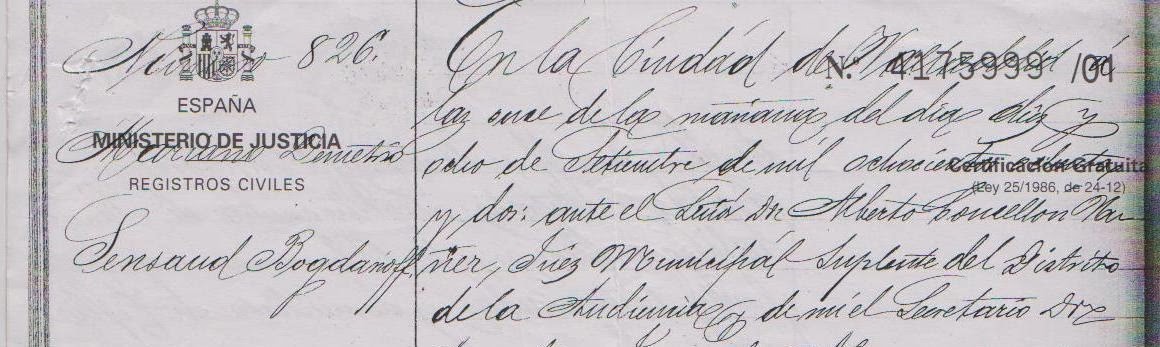 Número 826.
ESPAÑA
MINISTERIO DE JUSTICIA
REGISTROS CIVILES
Mariano Demetrio
Sensaud Bogdanoff
Nº 4175999 /01
Certificación Gratuita
(Ley 25/1986, de 24-12)
En la Ciudad de Valladolid á
las once de la mañana del dia diez y
ocho de Setiembre de mil ochocientos ochenta
y dos: ante el Dn Alberto
Juez Municipal Suplente del Distrito
de la Audiencia y de mi el Secretario Dn